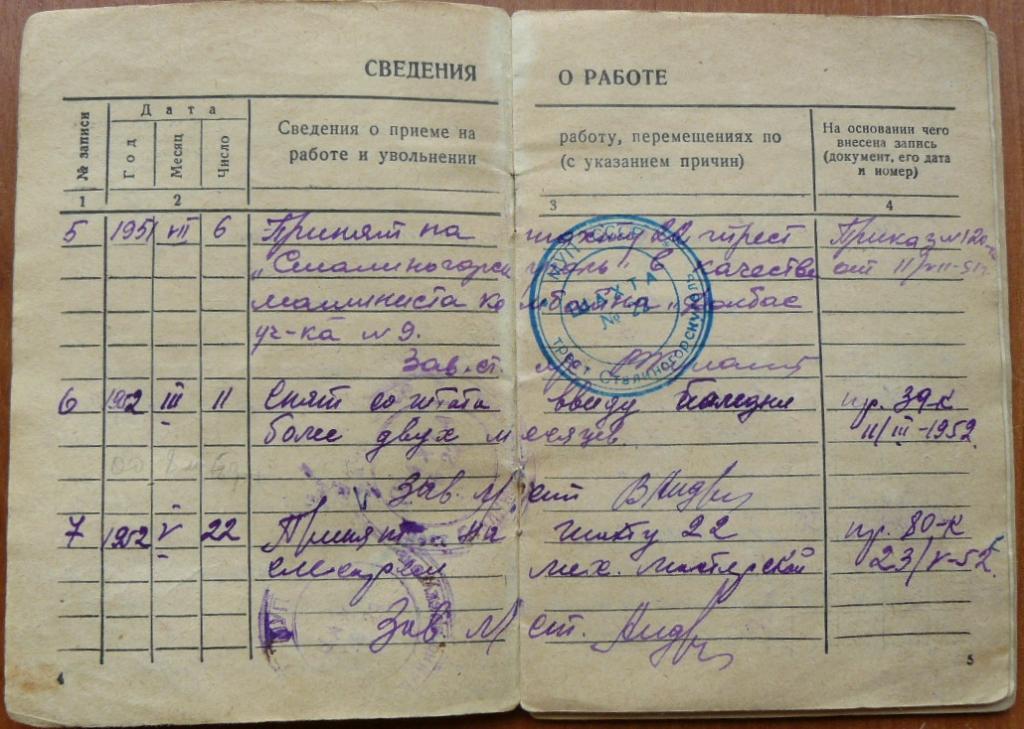 СВЕДЕНИЯ О РАБОТЕ
№ записи
Дата
Год
Месяц
Число
Сведения о приеме на работу, перемещениях по
работе и увольнении (с указанием причин)
На основании чего
внесена запись
(документ, его дата
и номер)
1 2 3 4
5 1951 VII 6 Принят на шахту 22 трест Приказ №120-к
„Сталиногорскуголь" в качестве от 11/VII-51г.
машиниста комбайна „Донбас
уч-ка №9.
Зав. ст.
6 1952 III 11 Снят со штата ввиду болезни пр. 39-к
более двух месяцев 11/III-1952.
Зав. М/ст
7 1952 V 22 Принят на шахту 22 пр. 80-к
слесарем мех. мастерской 23/V-52г.
Зав. М/ст.
ШАХТА
№ 22
трест Сталиногорскуголь
МУП
4
5